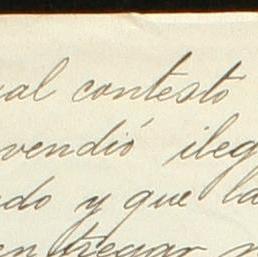 ual contesto
vendió ileg
do y que la
entregar